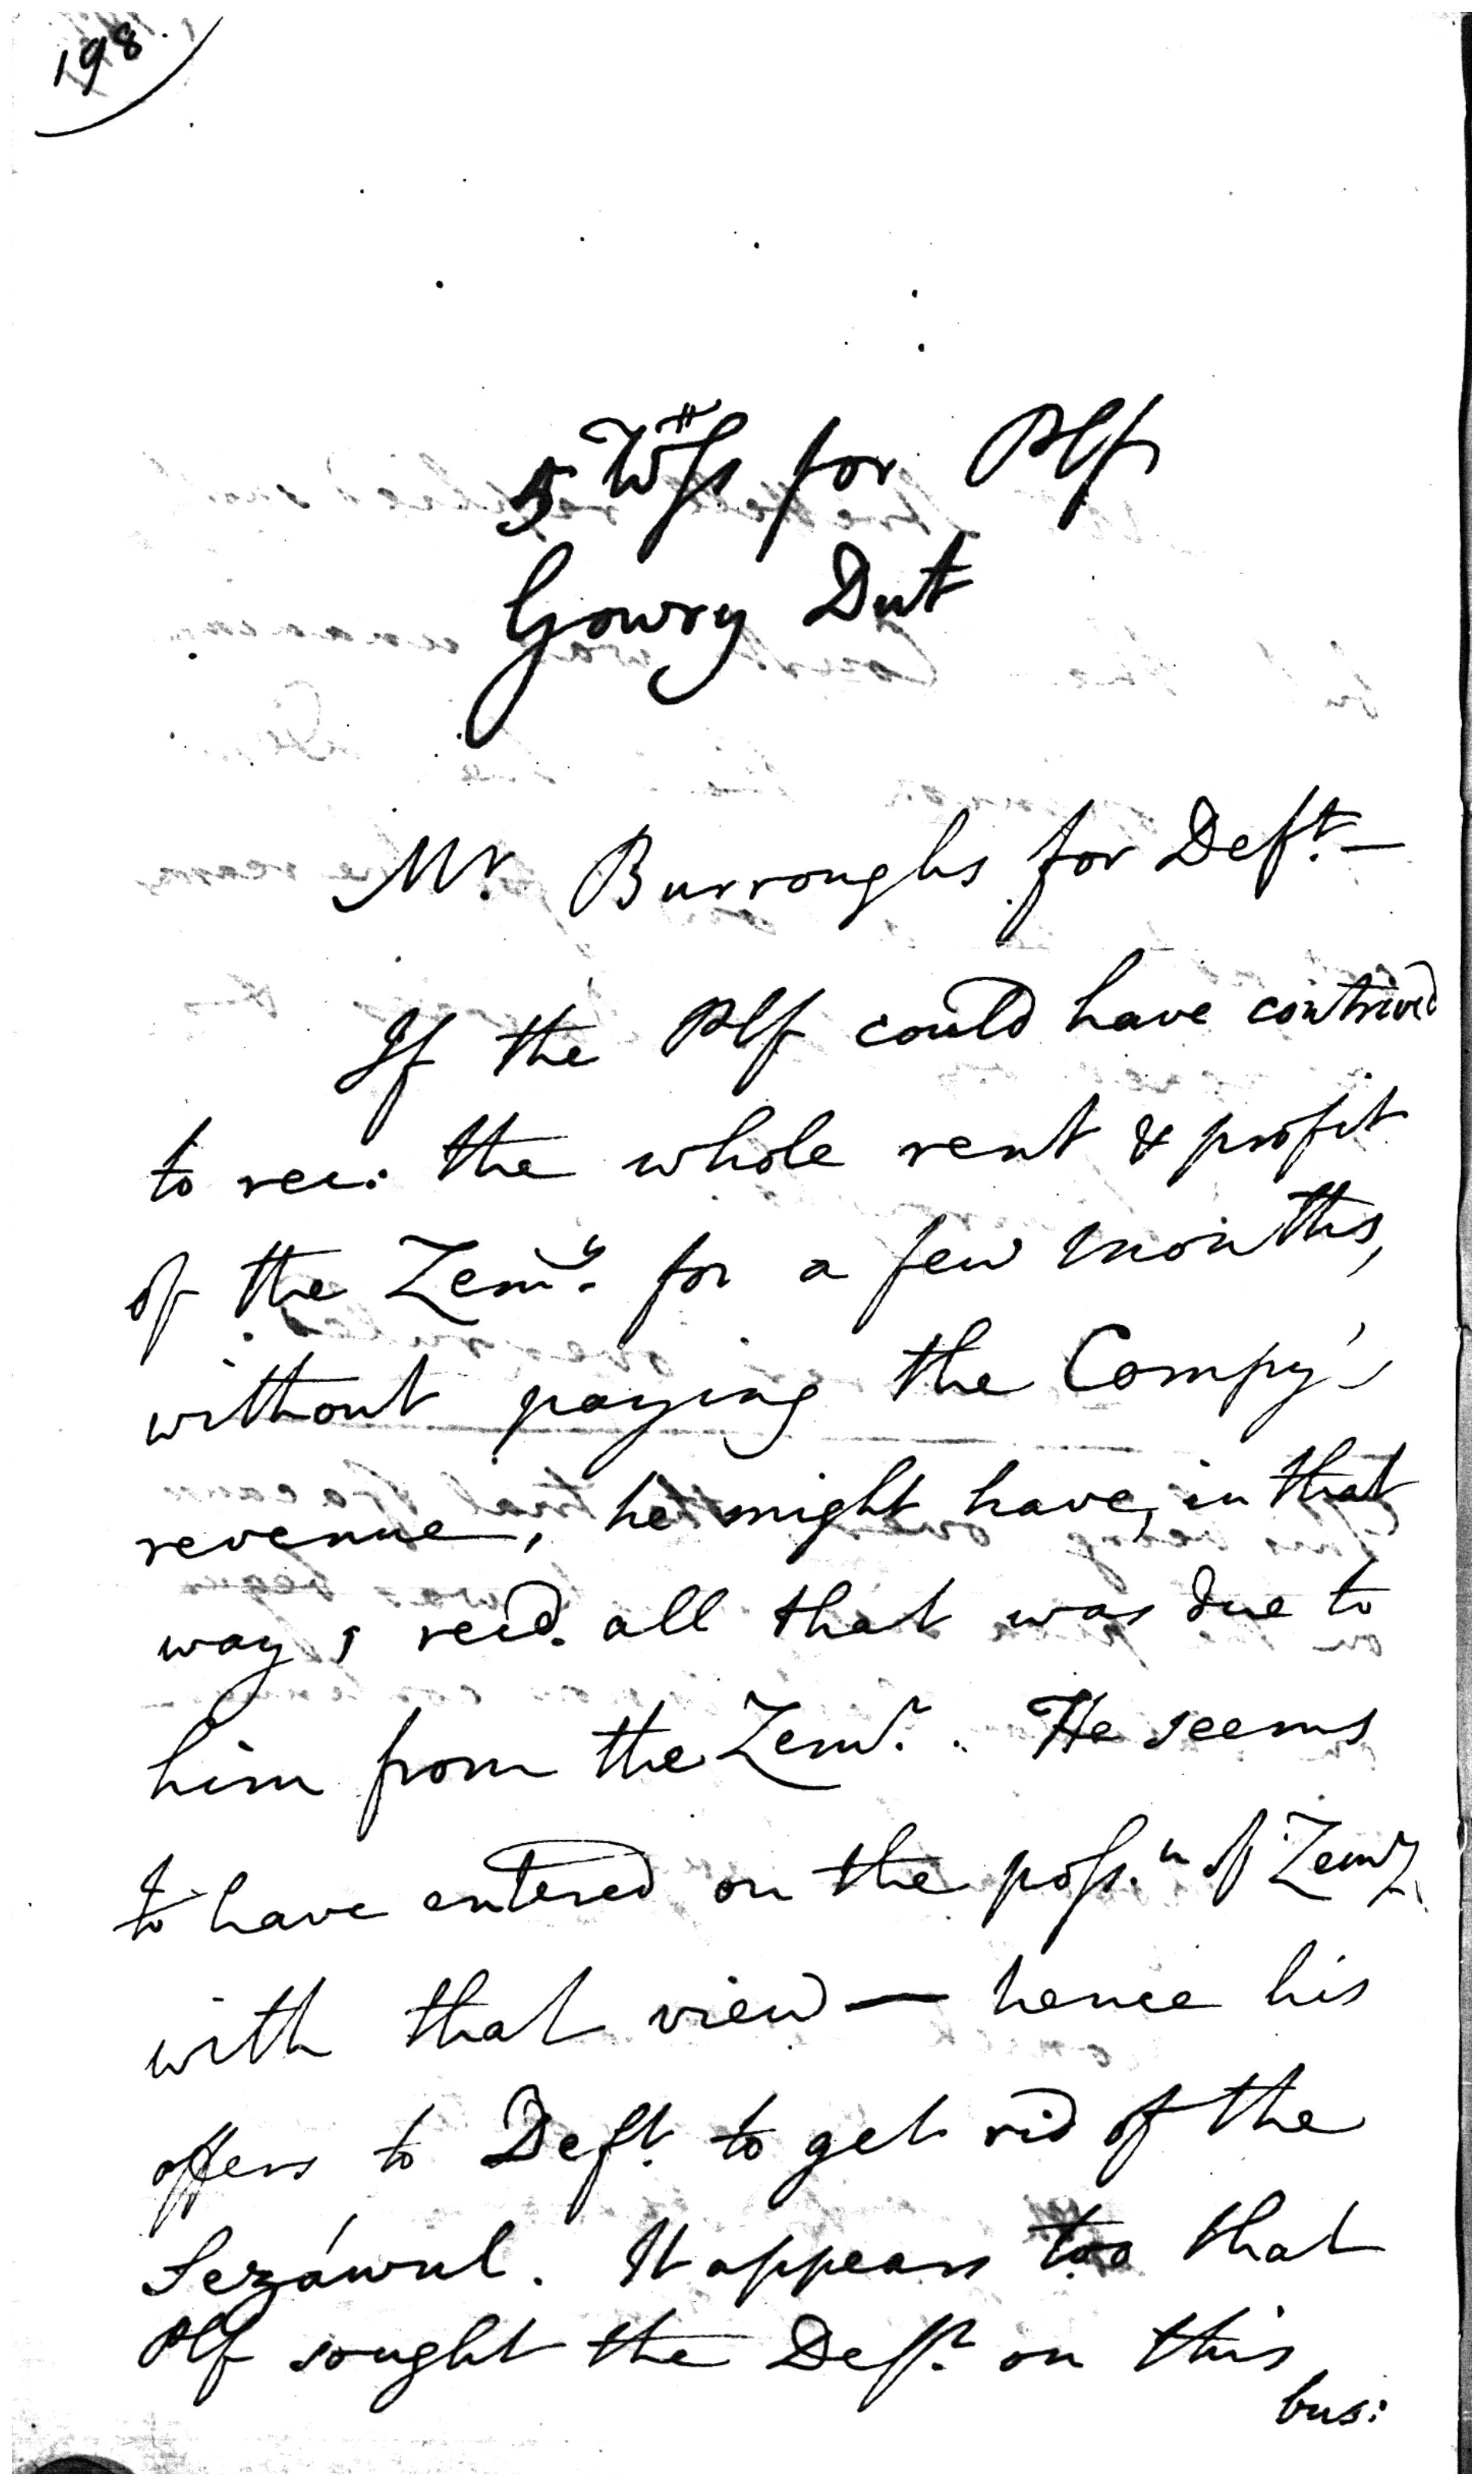 198
5 Wss for Plf
Gowry Dut
Mr. Burroughs for Deft. —
If the Plf could have contrived
to rec: the whole rent & profit
of the Zemy. for a few months,
without paying the Compy's
revenue, he might have, in that
way, recd. all that was due to
him from the Zemr. He seems
to have entered on the possn. of Zemy.
with that view — hence his
offers to Deft. to get rid of the
Sezáwul. It appears too that
Plf sought the Deft. on this
bus: